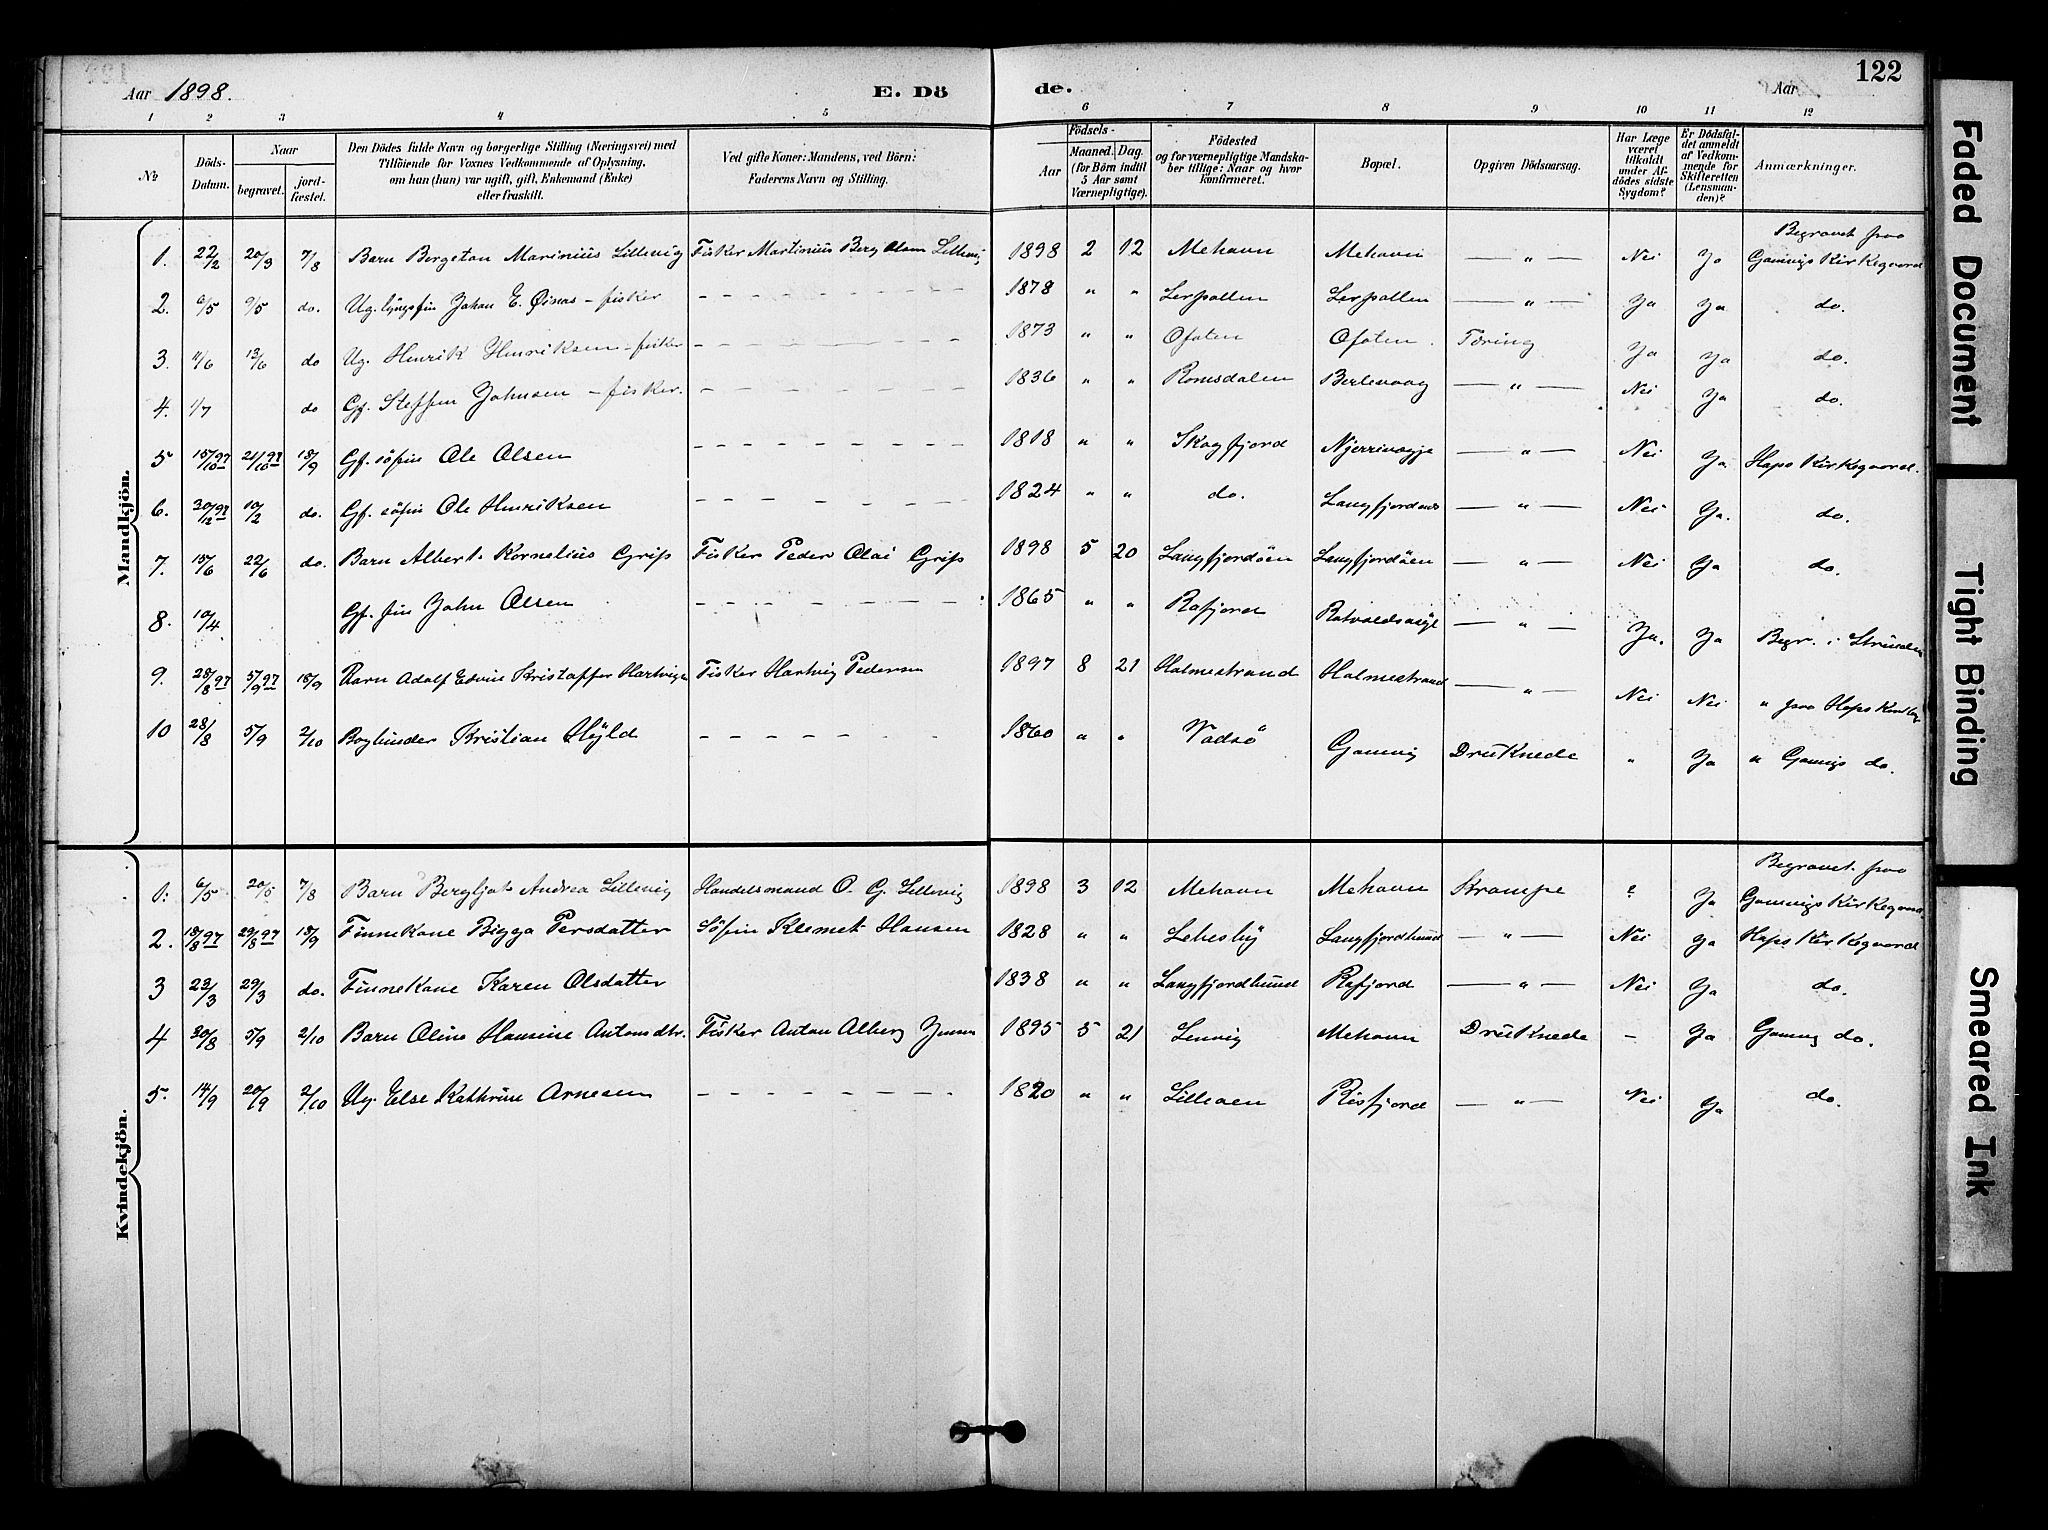 Aar 1898. E. Dö de. Aar 122
1 2 3 4 5 6 7 8 9 10 11 12
No
Döds-Datum.
Naar
begravet. jordfæstet.
Den Dödes fulde Navn og borgerlige Stilling (Næringsvei) med
Tilföiende for Voxnes Vedkommende af Oplysning,
om han (hun) var ugift, gift, Enkemand (Enke)
eller fraskilt.
Ved gifte Koner: Mandens, ved Börn:
Faderens Navn og Stilling.
Födsels-
Aar Maaned. Dag.
(for Börn indtil
5 Aar samt
Værnepligtige).
Födested
og for værnepligtige Mandska-
ber tillige: Naar og hvor
konfirmeret.
Bopæl.
Opgiven Dödsaarsag.
Har Læge
været
tilkaldt
under Af-
dödes sidste
Sygdom?
Er Dödsfal-
det anmeldt
af Vedkom-
mende for
Skifteretten
(Lensman-
den)?
Anmærkninger.
Mandkjön.
1. 22/2 20/3 7/8 Barn Bergeton Marinius Lillevig Fisker Martinius Berg Lillevig 1898 2 12 Mehavn Mehavn — " — Nei Ja Begravet paa Gamvigs Kirkegaard
2. 6/5 9/5 do. Ug. Johan E. — fisker 1878 " " Lerpollen Lerpollen — " — Ja Ja do.
3. 11/6 13/6 do Ug. Henrik Henriksen — fisker 1873 " " Ofoten Ofoten. Tæring Ja Ja do.
4. 1/7 do Gf. Steffen Johnsen — fisker. 1836 " " Romsdalen Berlevaag — " — Nei Ja do.
5 15/10 97 21/10 97 18/9 Gf. söfin Ole Olsen 1818 " " Skogfjord — " — Nei Ja Hops Kirkegaard.
6. 30/12 97 10/2 do. Gf. söfin Ole Henriksen 1824 " " do. — " — Nei Ja. do.
7. 15/6 22/6 do. Barn Albert Kornelius Grip Fisker Peder Olai Grip 1898 5 20 Langfjordöen Langfjordöen — " — Nei Ja do.
8. 10/4 Gf. fin John Olsen 1865 " " Rafjord — " — Ja. Ja Begr. i
9. 28/8 97 5/9 97 18/9 Barn Adolf Edvin Kristoffer Hartvigsen Fisker Hartvig Pedersen 1897 8 21 Holmestrand Holmestrand — " — Nei Nei " paa Hops
10 28/8 5/9 2/10 Bogbinder Kristian Hyld 1860 " " Vadsö Gamvig Druknede " Ja " Gamvigs do.
Kvindekjön.
1: 6/5 20/5 7/8 Barn Bergljot Andrea Lillevig Handelsmand O. G. Lillevig 1898 3 12 Mehavn Mehavn Krampe ? Ja Begravet paa Gamvigs Kirkegaard
2. 18/8 97 29/8 97 18/9 Finnekone Bigga Persdatter Söfin Klemet Hansen 1828 " " Lebesby Langfjordbund — " — Nei Ja Hops Kirkegaard
3 23/3 29/3 do. Finnekone Karen Olsdatter 1838 " " Langfjordbund Rafjord — " — Nei Ja do.
4 30/8 5/9 2/10 Barn Oline Hansine Antonsdtr. Fisker Anton Alberg Jensen 1895 5 21 Lenvig Mehavn Druknede - Ja Gamvig do.
5. 14/9 20/9 2/10 Ug. Else Kathrine Arnesen 1820 " " Risfjord — " — Nei Ja do.
Faded Document
Tight Binding
Smeared Ink